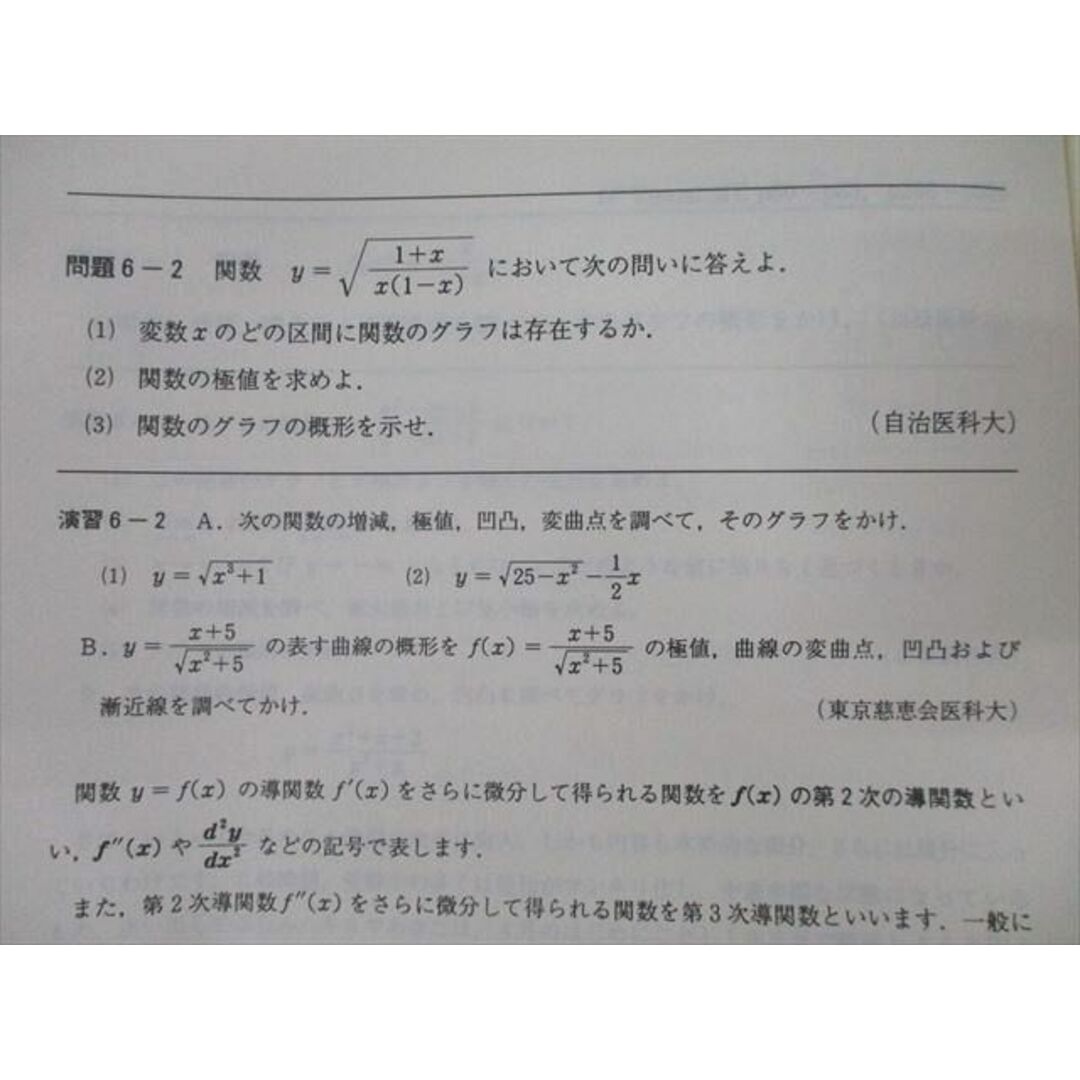 問題6－2 関数 y=√((1+x)/(x(1−x))) において次の問いに答えよ.
(1) 変数xのどの区間に関数のグラフは存在するか.
(2) 関数の極値を求めよ.
(3) 関数のグラフの概形を示せ. (自治医科大)
演習6－2 A. 次の関数の増減, 極値, 凹凸, 変曲点を調べて, そのグラフをかけ.
(1) y=√(x³+1) (2) y=√(25−x²)−(1/2)x
B. y=(x+5)/√(x²+5) の表す曲線の概形を f(x)=(x+5)/√(x²+5) の極値, 曲線の変曲点, 凹凸および
漸近線を調べてかけ. (東京慈恵会医科大)
関数 y=f(x) の導関数 f′(x) をさらに微分して得られる関数を f(x) の第2次の導関数とい
い, f″(x) や d²y/dx² などの記号で表します.
また, 第2次導関数 f″(x) をさらに微分して得られる関数を第3次導関数といいます. 一般に